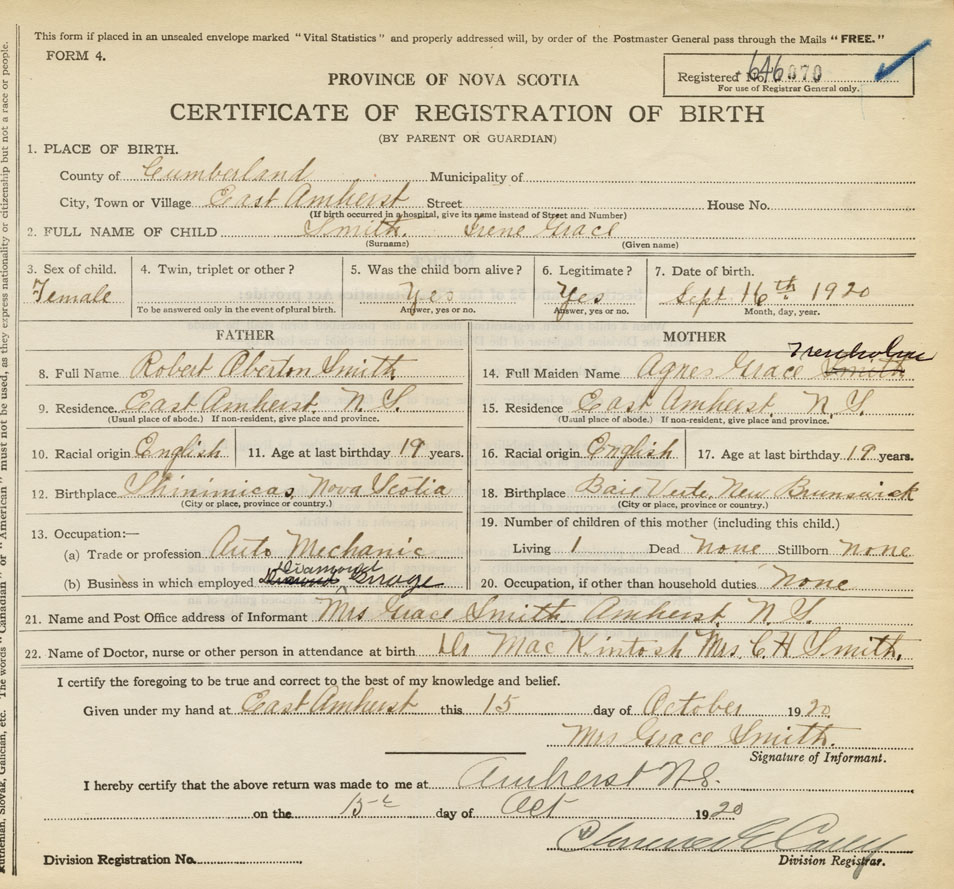 This form if placed in an unsealed envelope marked "Vital Statistics" and properly addressed will, by order of the Postmaster General pass through the Mails "FREE."
FORM 4.
Registered No. 646070
For use of Registrar General only.
PROVINCE OF NOVA SCOTIA
CERTIFICATE OF REGISTRATION OF BIRTH
(BY PARENT OR GUARDIAN)
1. PLACE OF BIRTH.
County of Cumberland Municipality of
City, Town or Village East Amherst Street House No.
(If birth occurred in a hospital, give its name instead of Street and Number)
2. FULL NAME OF CHILD Smith. Irene Grace
(Surname) (Given name)
3. Sex of child. 4. Twin, triplet or other? 5. Was the child born alive? 6. Legitimate? 7. Date of birth.
Female Yes Yes Sept 16th 1920
To be answered only in the event of plural birth. Answer, yes or no. Answer, yes or no. Month, day, year.
FATHER MOTHER
8. Full Name Robert Oberton Smith 14. Full Maiden Name Agnes Grace Smith Trenholm
9. Residence. East Amherst. N. S. 15. Residence East Amherst. N. S.
(Usual place of abode.) If non-resident, give place and province. (Usual place of abode.) If non-resident, give place and province.
10. Racial origin English 11. Age at last birthday 19 years. 16. Racial origin English 17. Age at last birthday 19 years.
12. Birthplace Shinimicas, Nova Scotia 18. Birthplace Baie Verte, New Brunswick
(City or place, province or country.) (City or place, province or country.)
13. Occupation:— 19. Number of children of this mother (including this child.)
(a) Trade or profession Auto Mechanic Living 1 Dead None Stillborn None
(b) Business in which employed Diamond Garage 20. Occupation, if other than household duties. None
21. Name and Post Office address of Informant Mrs Grace Smith. Amherst. N. S.
22. Name of Doctor, nurse or other person in attendance at birth Dr MacKintosh Mrs. C. H Smith.
I certify the foregoing to be true and correct to the best of my knowledge and belief.
Given under my hand at East Amherst this 15 day of October 1920
Mrs Grace Smith.
Signature of Informant.
I hereby certify that the above return was made to me at Amherst N.S.
on the 15th day of Oct 1920
Division Registration No.
Division Registrar.
Ruthenian, Slovak, Galician, etc. The words "Canadian" or "American" must not be used, as they express nationality or citizenship but not a race or people.